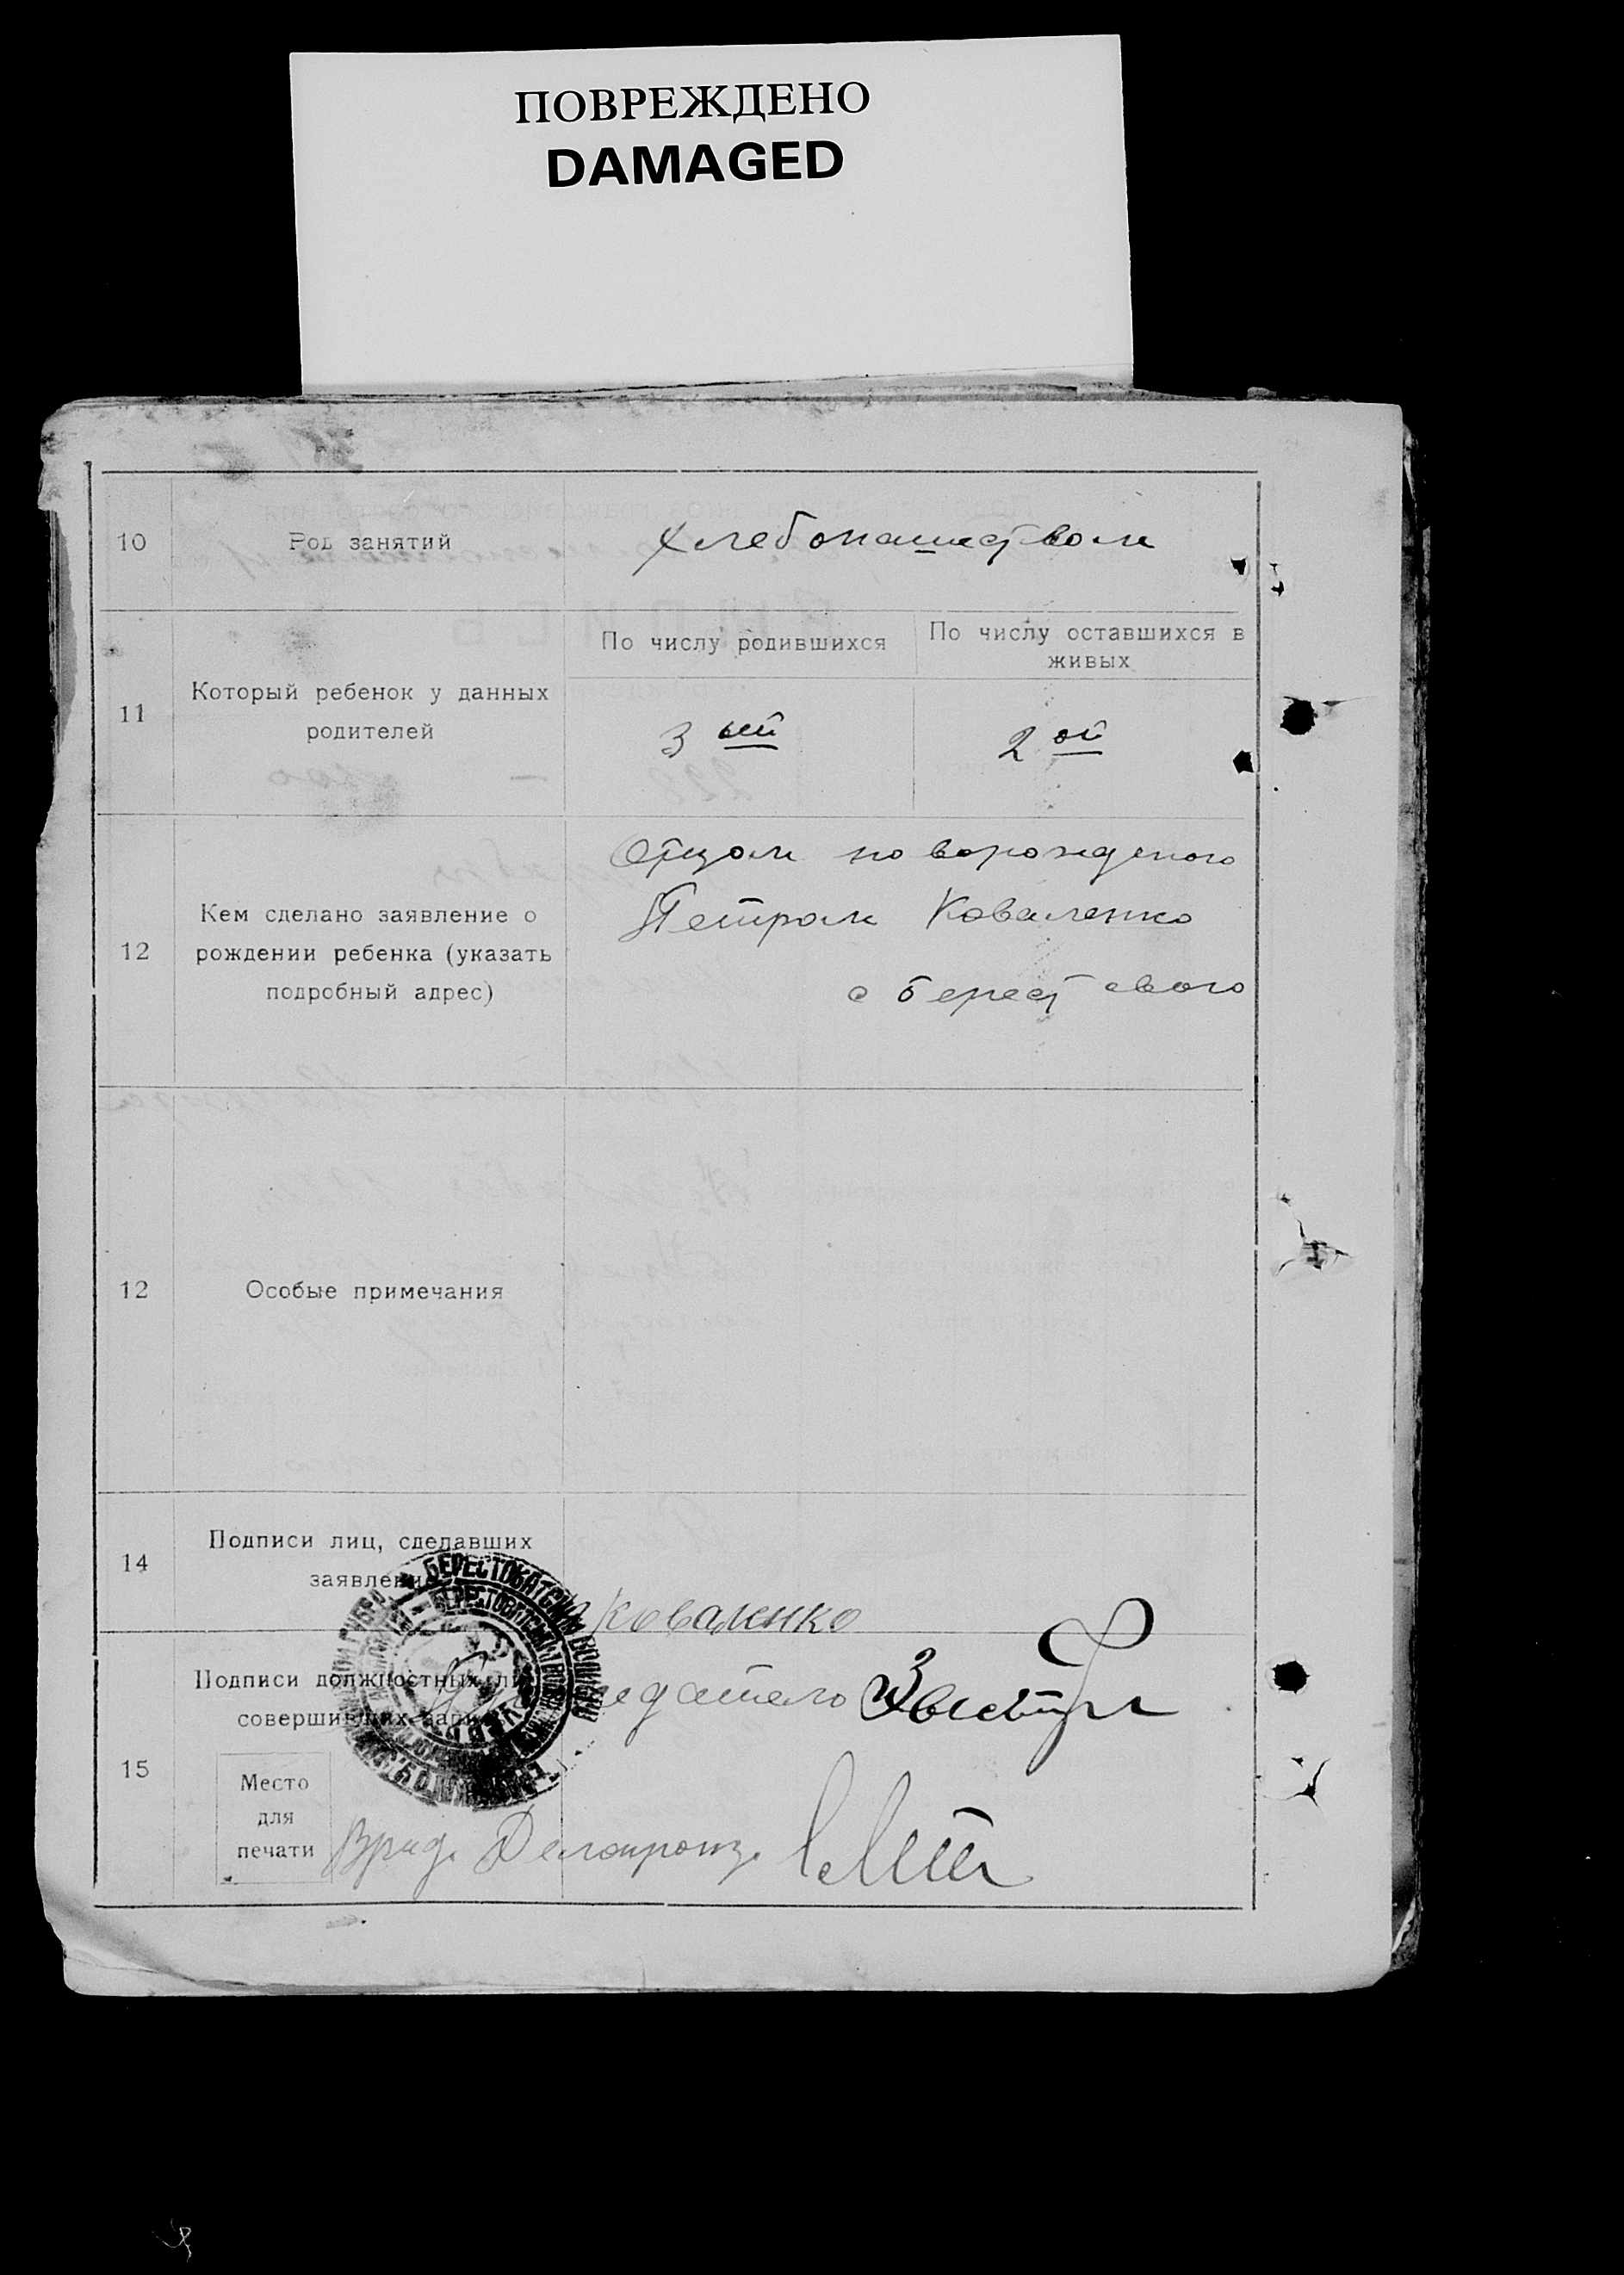 ПОВРЕЖДЕНО
DAMAGED
10 Род занятий Хлебопашеством
11 Который ребенок у данных родителей
По числу родившихся
По числу оставшихся в
живых
3 ий
2 ой
12 Кем сделано заявление о
рождении ребенка (указать
подробный адрес)
Отцом новорожденого
Петром Коваленко
с Берестового
12 Особые примечания
14 Подписи лиц, сделавших
заявление
Коваленко
15 Подписи должностных лиц
совершивших запись
Место
для
печати
Врид. Делопроиз.